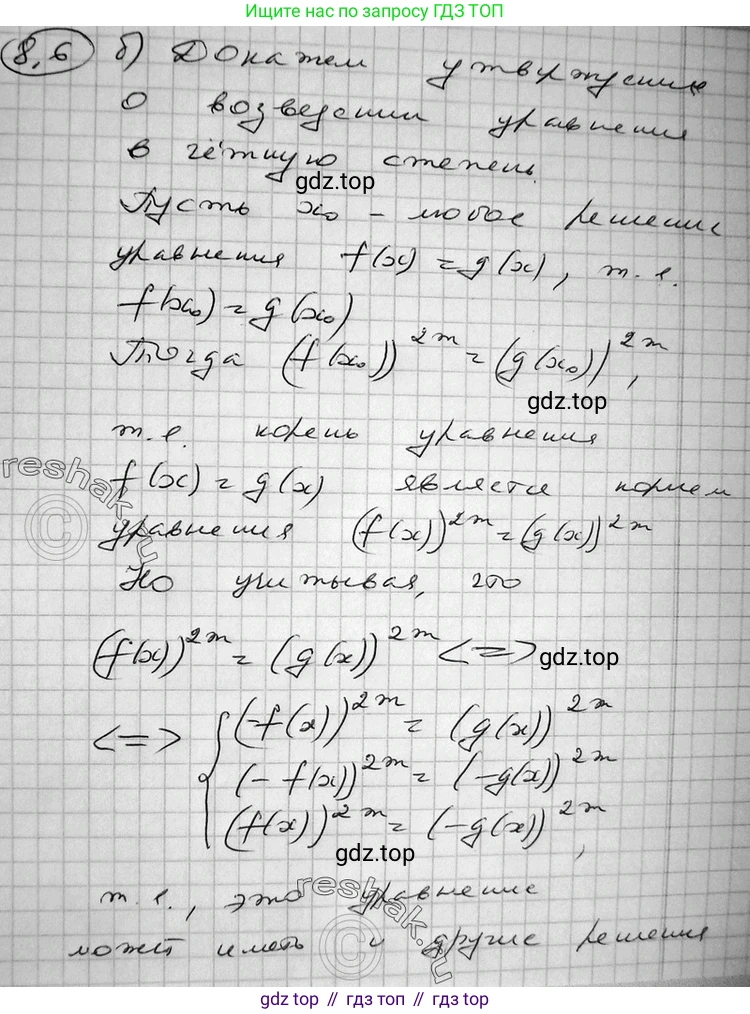 Ищите нас по запросу ГДЗ ТОП
8,6 б) Докажем утверждение
о возведении уравнения
в чётную степень.
gdz.top
Пусть x₀ – любое решение
уравнения f(x) = g(x), т.е.
f(x₀) = g(x₀)
Тогда (f(x₀))^2m = (g(x₀))^2m,
gdz.top
т.е. корень уравнения
f(x) = g(x) является корнем
уравнения (f(x))^2m = (g(x))^2m
reshak.ru
©
Но учитывая, что
(f(x))^2m = (g(x))^2m <=>
gdz.top
<=> { (-f(x))^2m = (g(x))^2m
(-f(x))^2m = (-g(x))^2m
(f(x))^2m = (-g(x))^2m,
gdz.top
т.е., это уравнение
может иметь и другие решения
reshak.ru
©
gdz.top // гдз топ // gdz.top